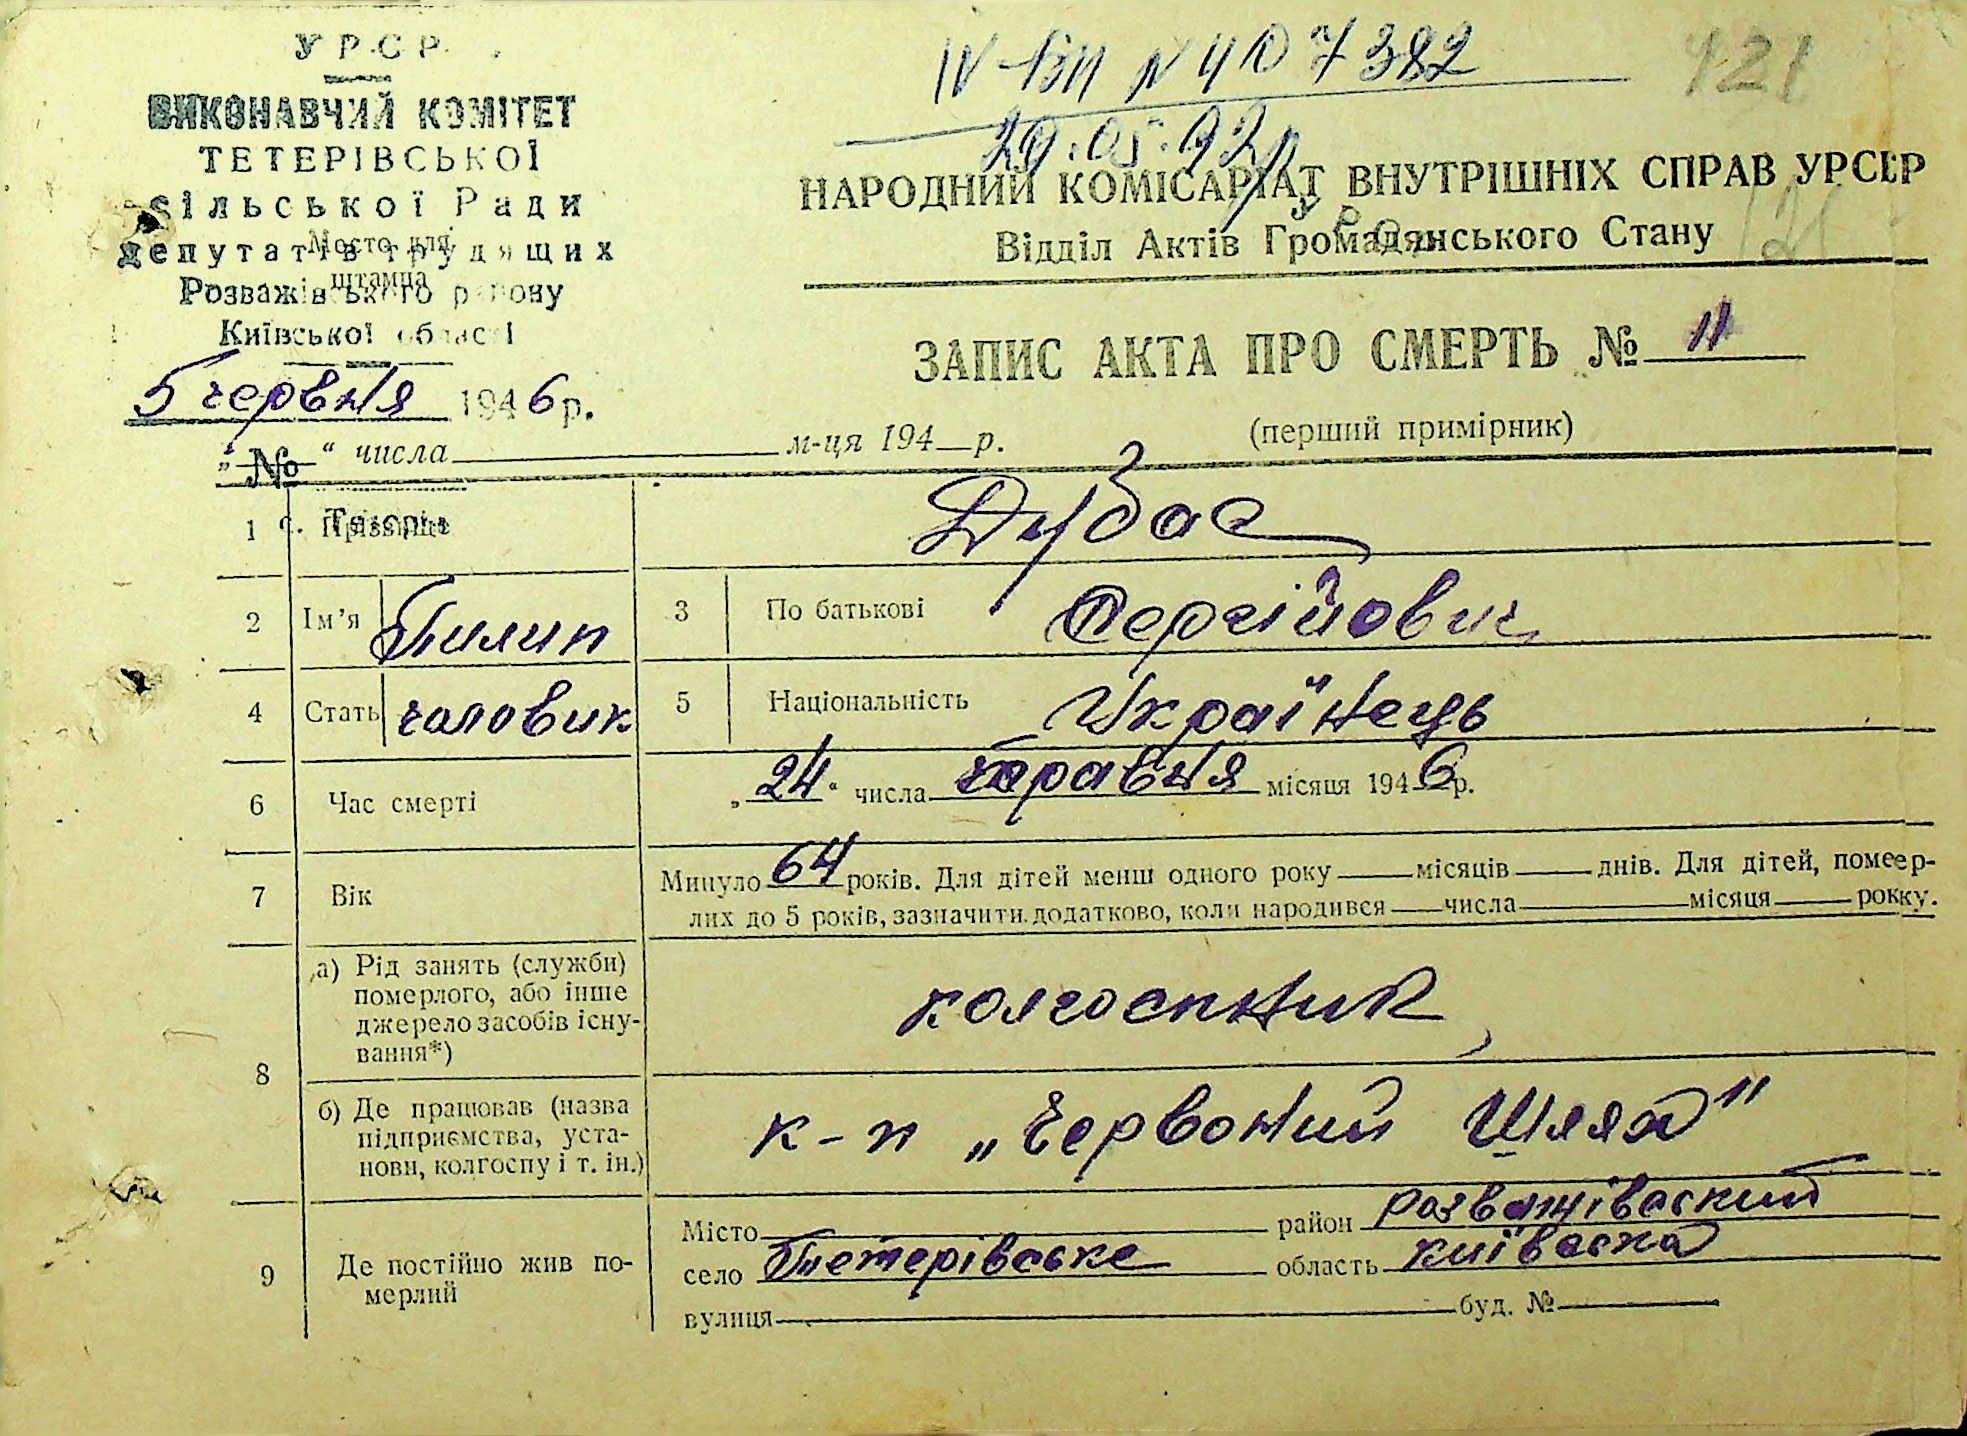 УРСР
ВИКОНАВЧИЙ КОМІТЕТ
ТЕТЕРІВСЬКОЇ
сільської Ради
депутатів трудящих
Місто для
штампа
Розважівського району
Київської області
5 червня 1946 р.
№
IV-БК N 407382
29.05.92р
121
121
НАРОДНИЙ КОМІСАРІАТ ВНУТРІШНІХ СПРАВ УРСР
Відділ Актів Громадянського Стану
ЗАПИС АКТА ПРО СМЕРТЬ № 11
(перший примірник)
„ “ числа м-ця 194 р.
1 Прізвище Дубас
2 Ім'я Пилип 3 По батькові Сергійович
4 Стать чоловик 5 Національність Українець
6 Час смерті „24“ числа місяця 1946 р.
7 Вік Минуло 64 років. Для дітей менш одного року місяців днів. Для дітей, помер-
лих до 5 років, зазначити додатково, коли народився числа місяця року.
8 а) Рід занять (служби)
померлого, або інше
джерело засобів існу-
вання*)
колгоспник
б) Де працював (назва
підприємства, уста-
нови, колгоспу і т. ін.)
к-п „Червоний Шлях"
9 Де постійно жив по-
мерлий
Місто район Розважівский
село Тетерівське область київска
вулиця буд. №